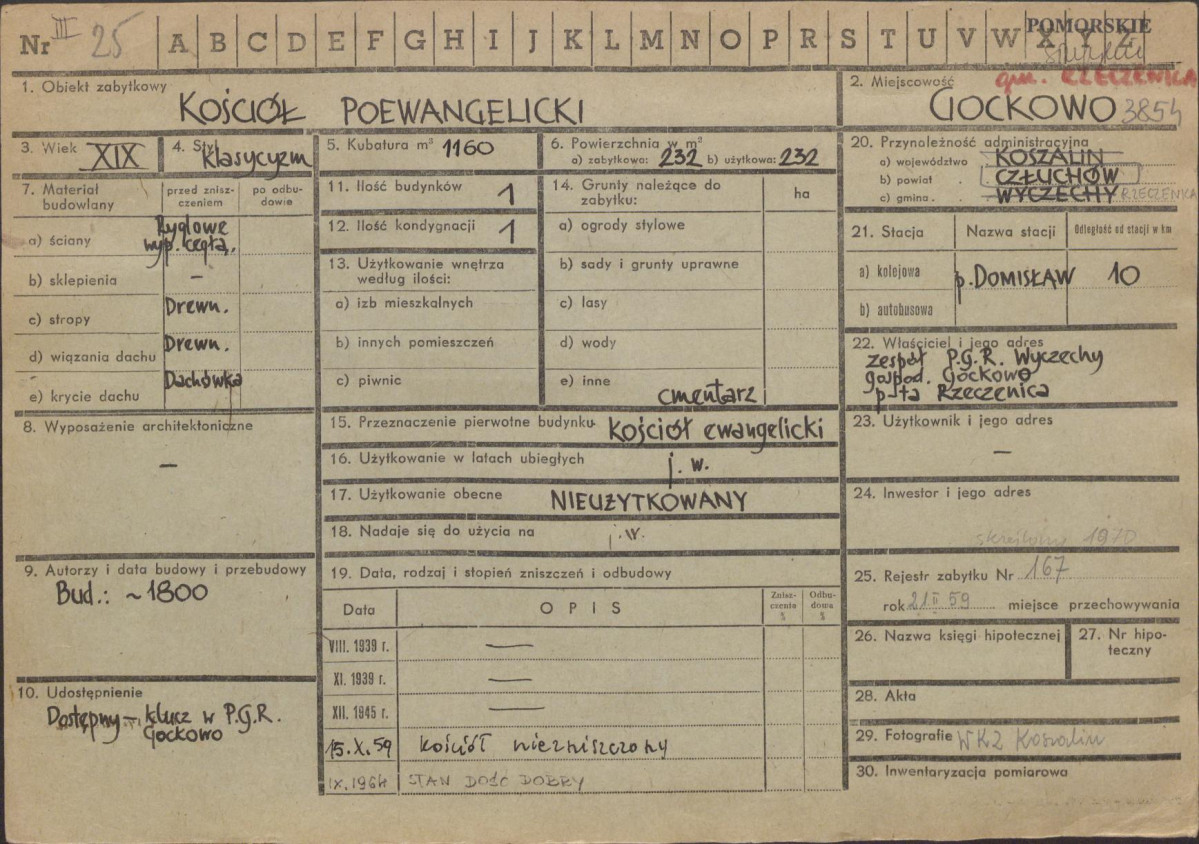 Nr III 25 A B C D E F G H I J K L M N O P R S T U V W X Y Z
POMORSKIE
gm. RZECZENICA
1. Obiekt zabytkowy
KOŚCIÓŁ POEWANGELICKI
2. Miejscowość
GOCKOWO 3854
3. Wiek XIX
4. Styl klasycyzm
5. Kubatura m³ 1160
6. Powierzchnia w m²
a) zabytkowa: 232 b) użytkowa: 232
7. Materiał budowlany
przed zniszczeniem
po odbudowie
a) ściany Ryglowe wyp. cegłą.
b) sklepienia –
c) stropy Drewn.
d) wiązania dachu Drewn.
e) krycie dachu Dachówka
8. Wyposażenie architektoniczne
–
9. Autorzy i data budowy i przebudowy
Bud.: ~1800
10. Udostępnienie
Dostępny – klucz w P.G.R.
Gockowo
11. Ilość budynków 1
12. Ilość kondygnacji 1
13. Użytkowanie wnętrza
według ilości:
a) izb mieszkalnych
b) innych pomieszczeń
c) piwnic
14. Grunty należące do
zabytku:
ha
a) ogrody stylowe
b) sady i grunty uprawne
c) lasy
d) wody
e) inne
cmentarz
15. Przeznaczenie pierwotne budynku Kościół ewangelicki
16. Użytkowanie w latach ubiegłych j. w.
17. Użytkowanie obecne NIEUŻYTKOWANY
18. Nadaje się do użycia na j. w.
19. Data, rodzaj i stopień zniszczeń i odbudowy
Data OPIS Zniszczenia % Odbudowa %
VIII. 1939 r. —
XI. 1939 r. —
XII. 1945 r. —
15.X.59 kościół niezniszczony
IX.1964 STAN DOŚĆ DOBRY
20. Przynależność administracyjna
a) województwo KOSZALIN
b) powiat CZŁUCHÓW
c) gmina WYCZECHY RZECZENICA
21. Stacja Nazwa stacji Odległość od stacji w km
a) kolejowa p. DOMISŁAW 10
b) autobusowa
22. Właściciel i jego adres
zespół P.G.R. Wyczechy
gospod. Gockowo
p-ta Rzeczenica
23. Użytkownik i jego adres
–
24. Inwestor i jego adres
1970
25. Rejestr zabytku Nr 167
rok 21 II 59 miejsce przechowywania
26. Nazwa księgi hipotecznej
27. Nr hipoteczny
28. Akta
29. Fotografie WKZ Koszalin
30. Inwentaryzacja pomiarowa